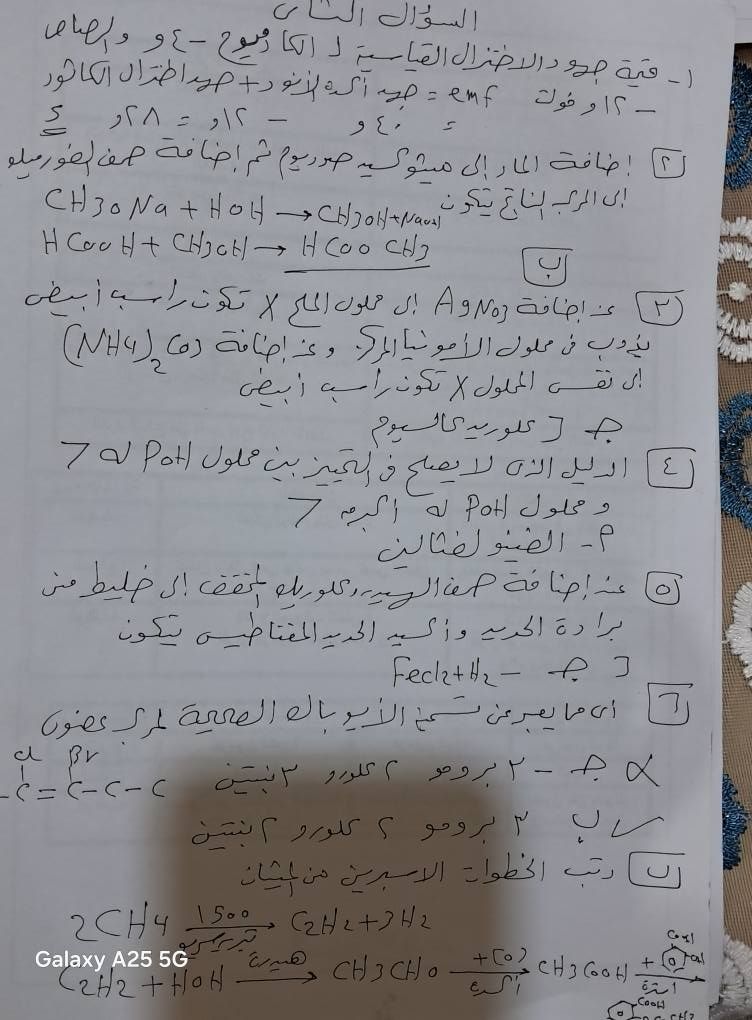 السؤال الثانى
١- قيمة جهود الاختزال القياسية لـ الكادميوم -٤,و والرصاص
-١٢,و فولت emf = جهد أكسدة الأنود + جهد اختزال الكاثود
= ٤,و - ١٢,و = ٢٨,و
٢ إضافة الماء إلى ميثوكسيد صوديوم ثم إضافة حمض الفورميك
إلى المركب الناتج يتكون
CH3ONa + HOH → CH3OH + NaOH
HCOOH + CH3OH → HCOOCH3
ب
٣ عند إضافة AgNO3 إلى محلول الملح X تكون راسب أبيض
يذوب فى محلول الأمونيا المركز وعند إضافة (NH4)2CO3
إلى نفس المحلول X تكون راسب أبيض
جـ] كلوريد كالسيوم
٤ الدليل الذى لا يصلح فى التمييز بين محلول POH له 7
و محلول POH له أكبر من 7
٩- الفينولفثالين
٥ عند إضافة حمض الهيدروكلوريك المخفف إلى خليط من
برادة الحديد وأكسيد الحديد المغناطيسى يتكون
[جـ - FeCl2+H2
٦ أى مما يعبر عن تسمية الأيوباك الصحيحة لمركب عضوى
X جـ - ٣ برومو ٢ كلورو ٣ بنتين
Cl Br
-C=C-C-C
ب ٣ برومو ٢ كلورو ٢ بنتين
٧ رتب الخطوات الاسبرين من الميثان
2CH4 1500 تبريد سريع → C2H2+3H2
C2H2 + HOH هيدرة → CH3CHO +[O] أكسدة → CH3COOH +
COOH OH أسترة →
COOH
Galaxy A25 5G